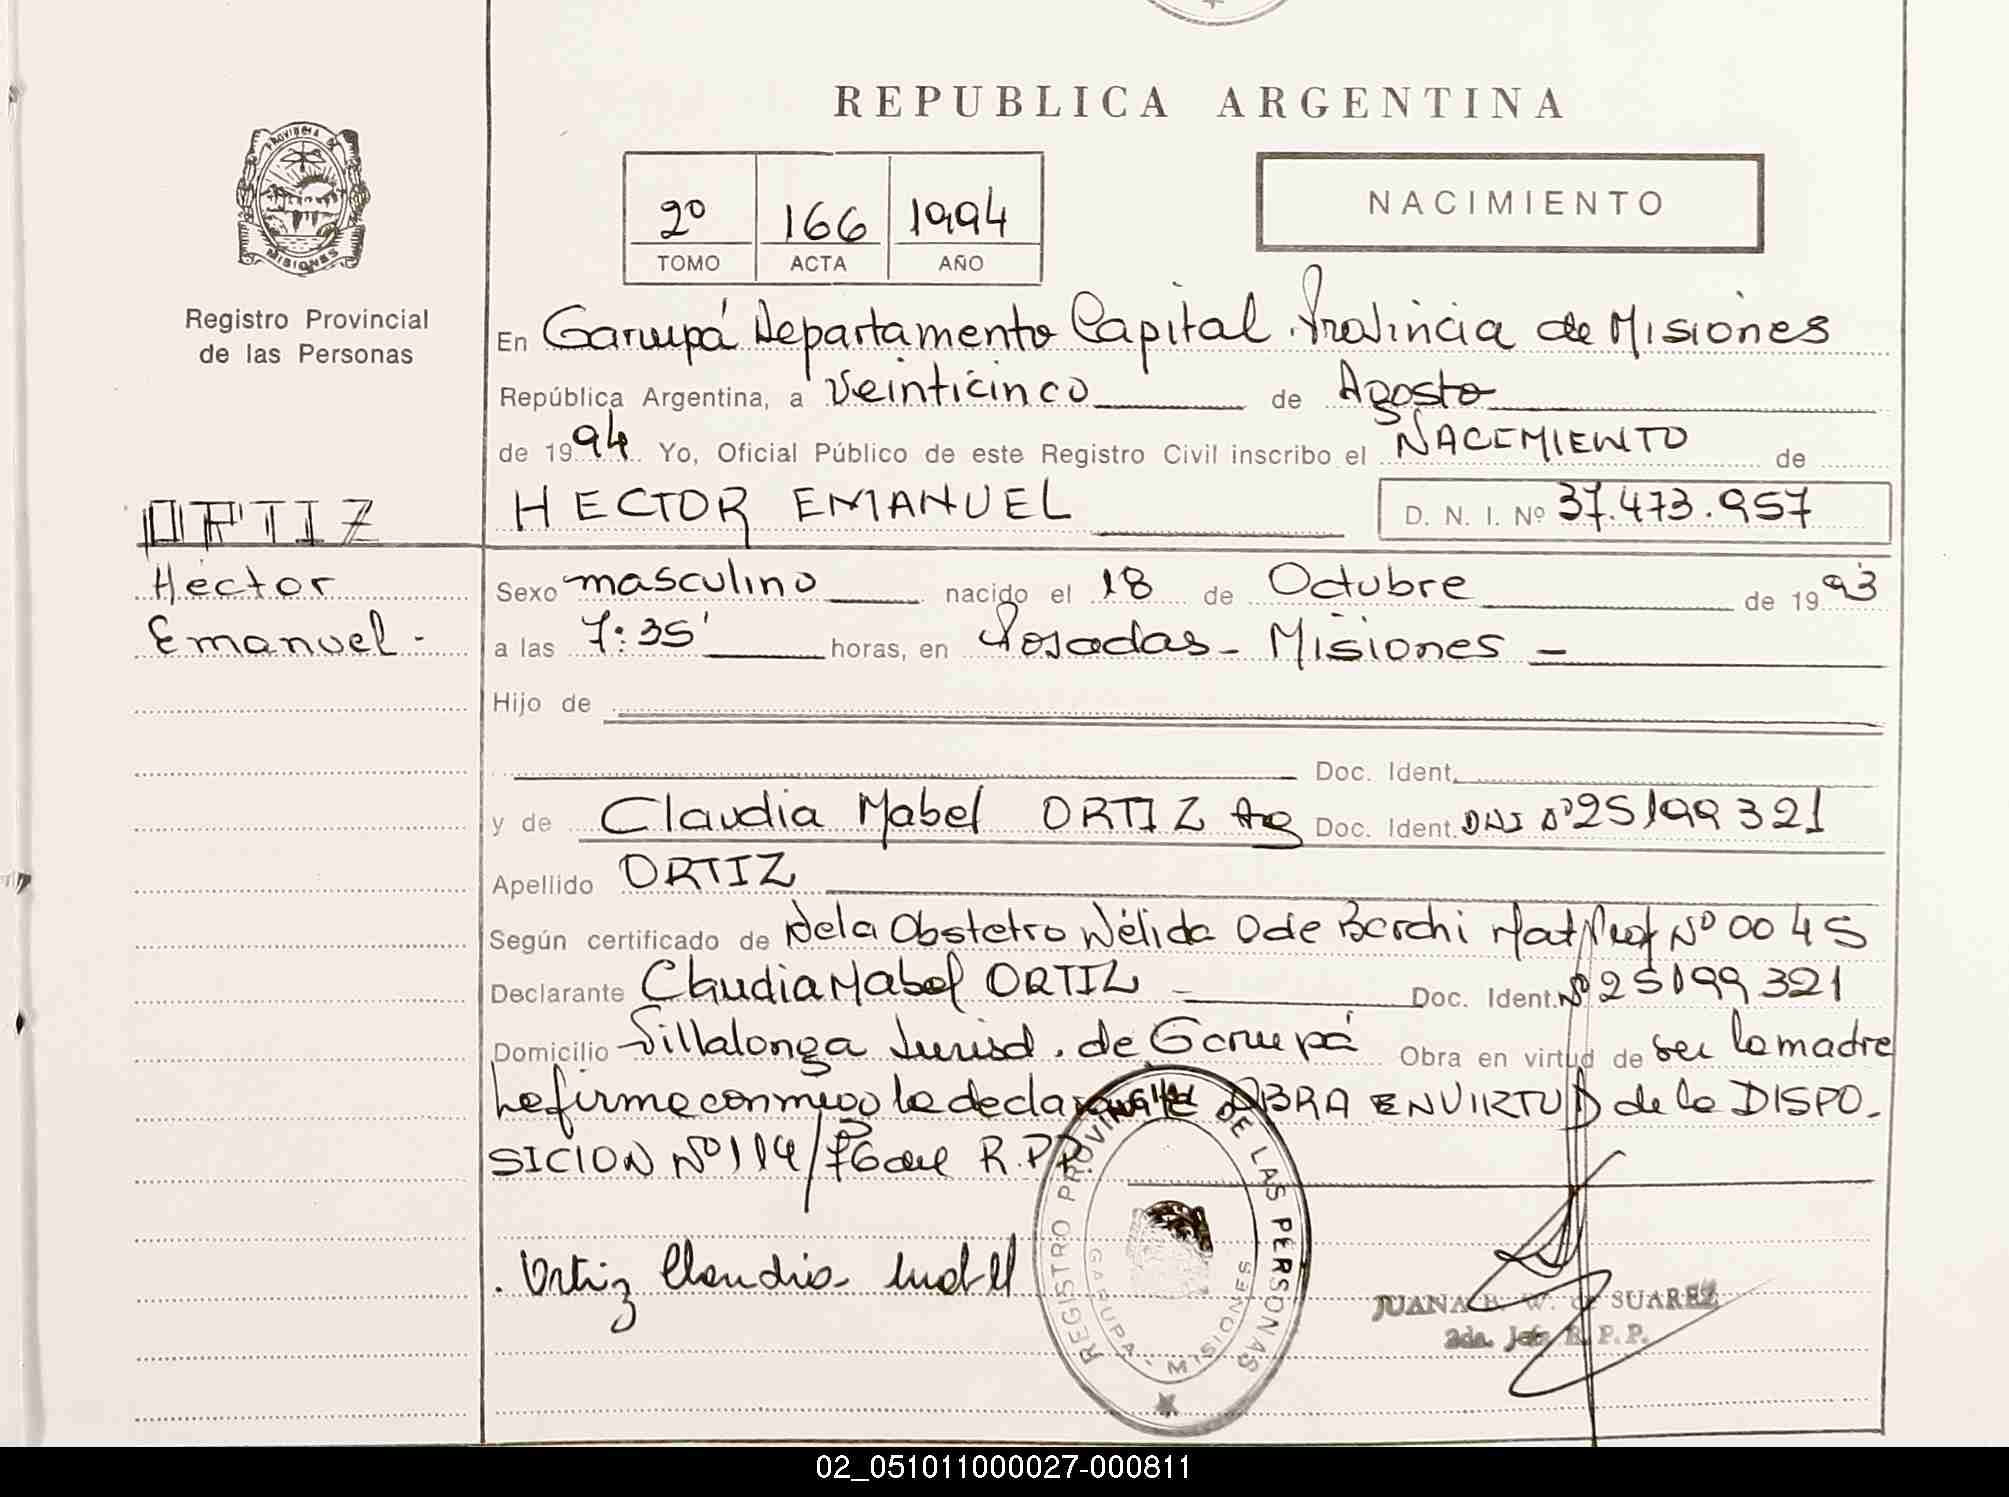 REPUBLICA ARGENTINA
PROVINCIA DE
MISIONES
Registro Provincial
de las Personas
2º 166 1994
TOMO ACTA AÑO
NACIMIENTO
En Garupá Departamento Capital Provincia de Misiones
República Argentina, a veinticinco de Agosto
de 1994 Yo, Oficial Público de este Registro Civil inscribo el NACIMIENTO de
HECTOR EMANUEL D. N. I. Nº 37.473.957
ORTIZ
Héctor
Emanuel.-
Sexo masculino nacido el 18 de Octubre de 1993
a las 7:35' horas, en Posadas - Misiones -
Hijo de
Doc. Ident.
y de Claudia Mabel ORTIZ Arg Doc. Ident. DNI Nº 25199321
Apellido ORTIZ
Según certificado de de la Obstetro Nélida O de Borchi Mat Prof Nº 0045
Declarante Claudia Mabel ORTIZ - Doc. Ident. Nº 25199321
Domicilio Villalonga Jurisd. de Garupá Obra en virtud de ser la madre
La firma conmigo la declarante OBRA EN VIRTUD de la DISPO-
SICION Nº 114/76 del R.P.P.
Ortiz Claudia Mabel
REGISTRO PROVINCIAL DE LAS PERSONAS
GARUPA - MISIONES
JUANA W. de SUAREZ
2da. Jefe R. P. P.
02_051011000027-000811